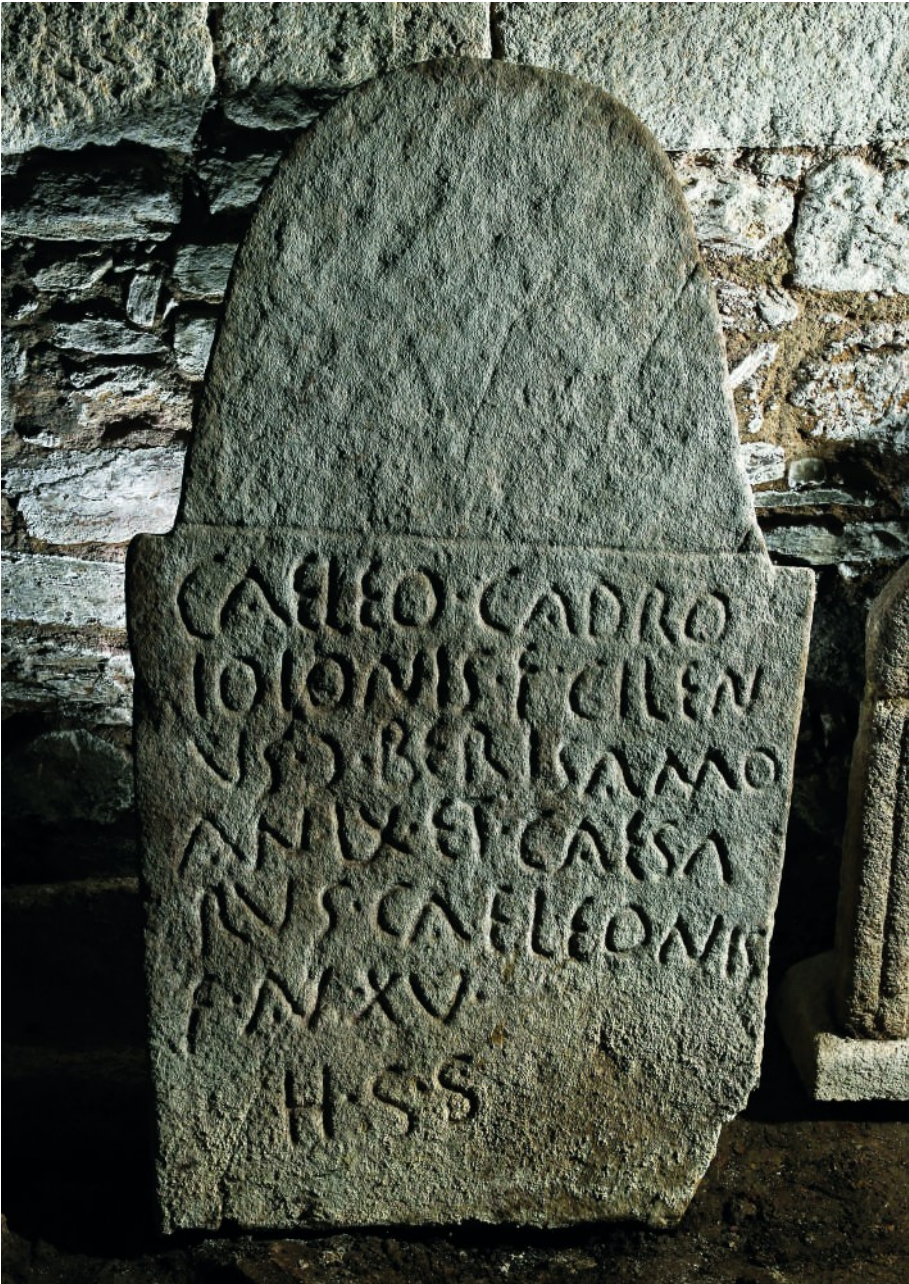 CAELEO·CADRO
IOLONIS·F·CILEN
VS·Ɔ·BERISAMO
AN·LX·ET·CAESA
RVS·CAELEONIS
F·AN·XV·
H·S·S